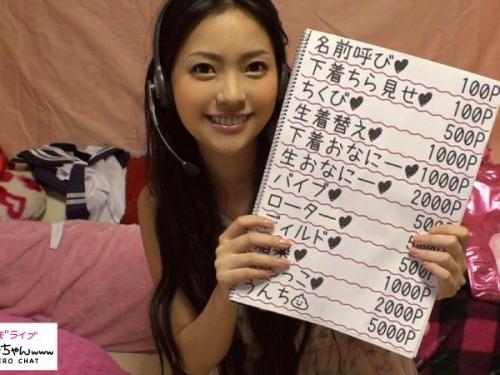 名前呼び♥ 100P
下着ちら見せ♥ 100P
ちくび♥ 500P
生着替え♥ 1000P
下着おなにー♥ 1000P
生おなにー♥ 2000P
バイブ♥
ローター♥
ィルド♥ 500P
1000P
っこ♥ 2000P
うんち 5000P
ライブ
ちゃんwww
ERO CHAT